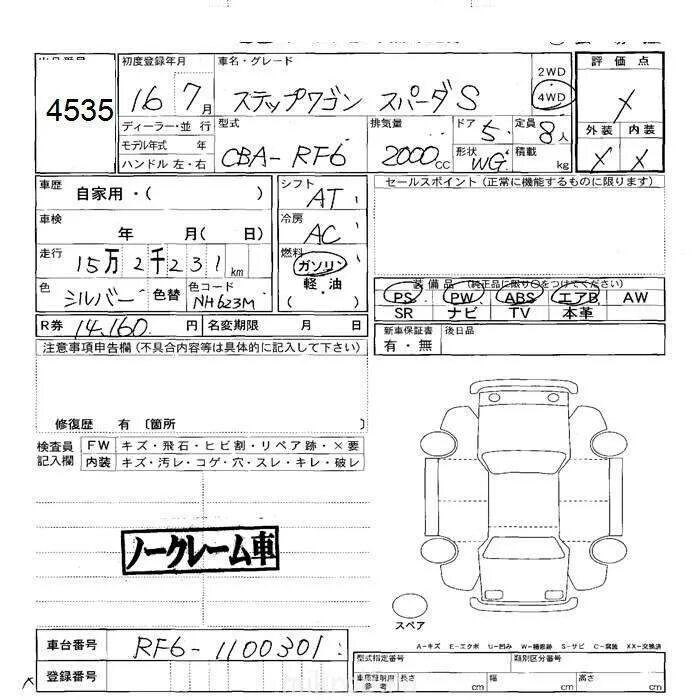 4535
初度登録年月 車名・グレード 2WD 評価点
16 7月 ステップワゴン スパーダS 4WD X
ディーラー・並行 型式 排気量 ドア 5 定員 8人 外装 内装
モデル年式 年 CBA-RF6 2000cc 形状 WG 積載 kg X X
ハンドル 左・右
車歴 自家用・( ) シフト AT セールスポイント (正常に機能するものに限ります)
車検 年 月(日) 冷房 AC
走行 15万2千231km 燃料 ガソリン 軽・油 ( )
色 シルバー 色替 色コード NH623M
装備品 (純正品に限り○をつけてください)
PS PW ABS エアB AW
SR ナビ TV 本革
R券 14,160 円 名変期限 月 日 新車保証書 後日品
有・無
注意事項申告欄 (不具合内容等は具体的に記入して下さい)
修復歴 有 〔箇所 〕
検査員記入欄 FW キズ・飛石・ヒビ割・リペア跡・×要
内装 キズ・汚レ・コゲ・穴・スレ・キレ・破レ
ノークレーム車
スペア
A-キズ E-エクボ U-凹み W-補修跡 S-サビ C-腐蝕 XX-交換済
車台番号 RF6-1100301
型式指定番号 類別区分番号
登録番号 車庫証明用参考 長さ cm 幅 cm 高さ cm